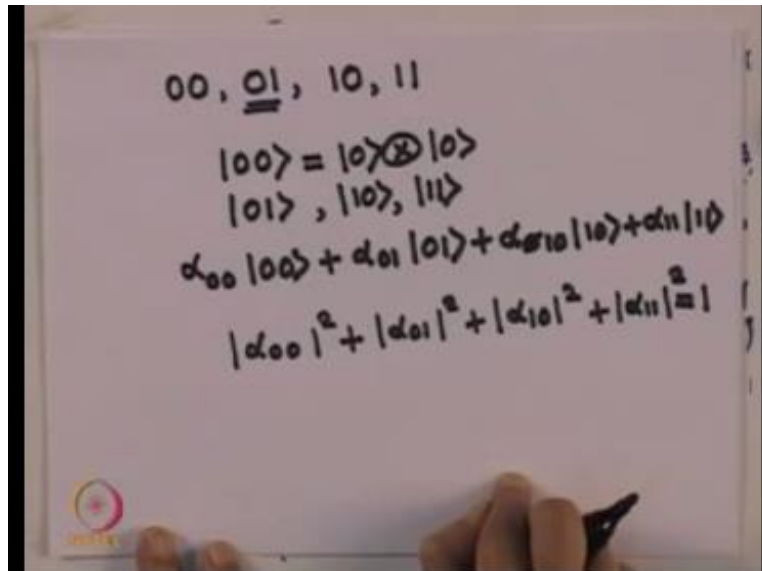 00, 01, 10, 11
|00⟩ = |0⟩⊗|0⟩
|01⟩, |10⟩, |11⟩
α00 |00⟩ + α01 |01⟩ + α10 |10⟩ + α11 |11⟩
|α00|² + |α01|² + |α10|² + |α11|² = 1